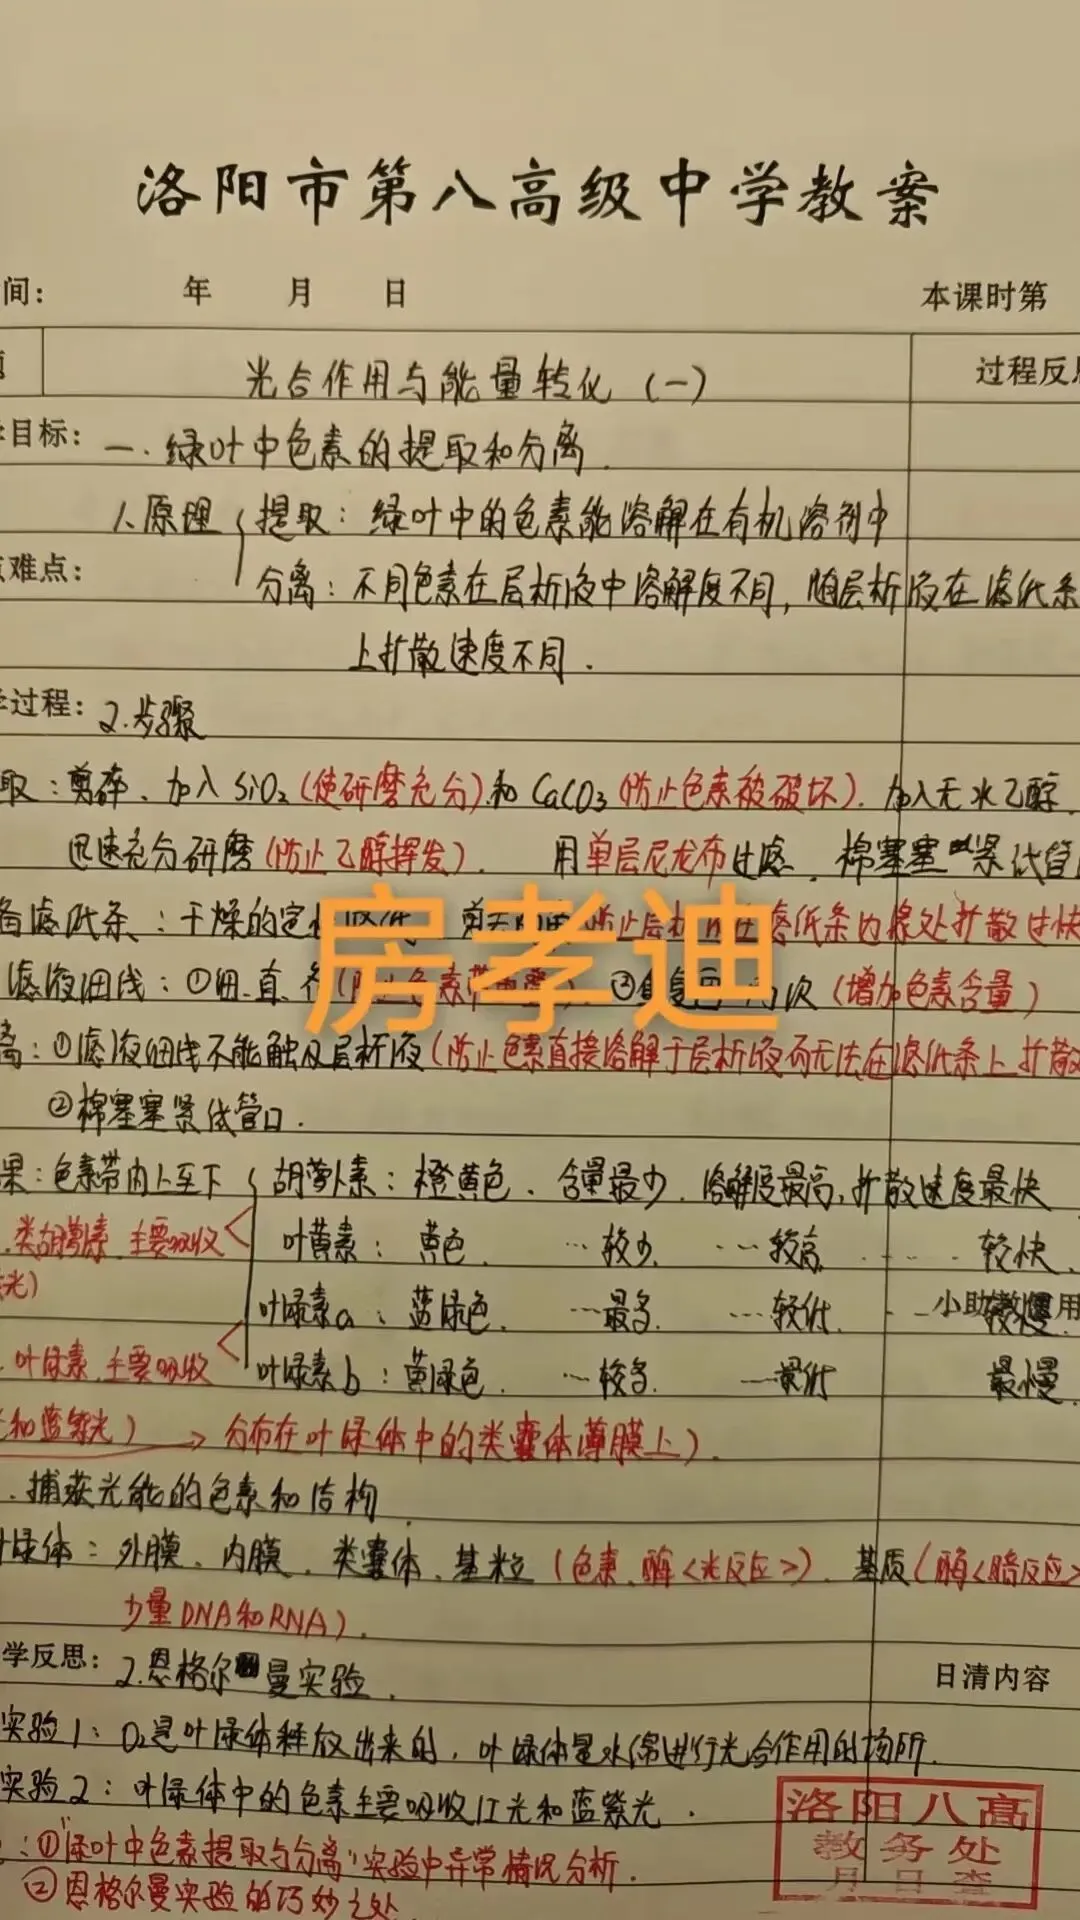 洛阳市第八高级中学教案
间: 年 月 日 本课时第
光合作用与能量转化(一) 过程反思
目标: 一.绿叶中色素的提取和分离.
1.原理{提取: 绿叶中的色素能溶解在有机溶剂中
难点:
分离: 不同色素在层析液中溶解度不同, 随层析液在滤纸条
上扩散速度不同.
过程: 2.步骤
取: 剪碎、加入SiO₂(使研磨充分)和CaCO₃(防止色素被破坏). 加入无水乙醇.
迅速充分研磨(防止乙醇挥发). 用单层尼龙布过滤. 棉塞塞紧试管
备滤纸条: 干燥的定 滤纸条边缘处扩散过快
滤液细线: ①细.直. 两次(增加色素含量)
离: ①滤液细线不能触及层析液(防止色素直接溶解于层析液而无法在滤纸条上扩散
②棉塞塞紧试管口.
果: 色素带由上至下{胡萝卜素: 橙黄色、含量最少. 溶解度最高, 扩散速度最快
类胡萝卜素, 主要吸收 叶黄素: 黄色. …较少. …较高. …较快.
光)
叶绿素a: 蓝绿色. …最多 …较低. 较慢. 小助教 用
叶绿素, 主要吸收 叶绿素b: 黄绿色. …较多. …最低 最慢.
和蓝紫光) → 分布在叶绿体中的类囊体薄膜上).
.捕获光能的色素和结构
叶绿体: 外膜、内膜、类囊体、基粒(色素、酶<光反应>). 基质(酶<暗反应>
少量DNA和RNA).
学反思: 2.恩格尔曼实验. 日清内容
实验1: O₂是叶绿体释放出来的, 叶绿体是水绵进行光合作用的场所.
实验2: 叶绿体中的色素主要吸收红光和蓝紫光.
: ①“绿叶中色素提取与分离”实验中异常情况分析.
②恩格尔曼实验的巧妙之处
房孝迪
洛阳八高
教务处
月 日 查